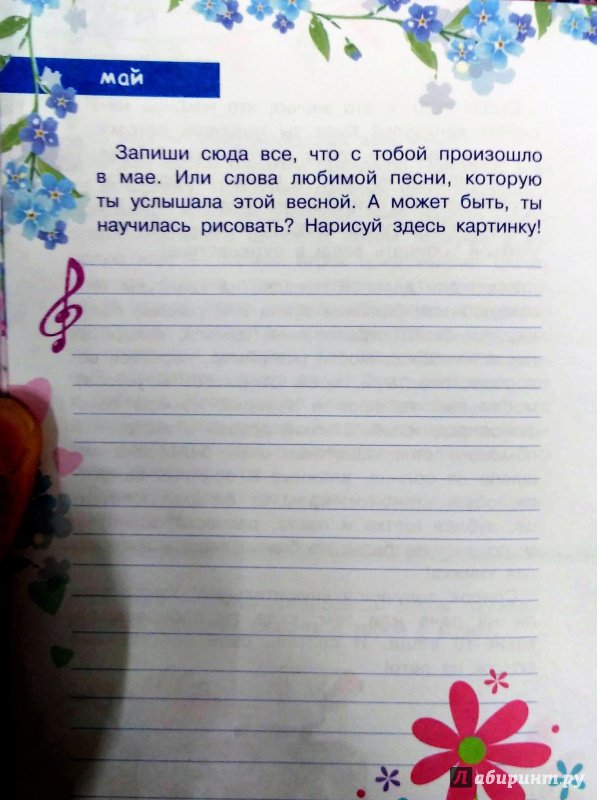 май
Запиши сюда все, что с тобой произошло
в мае. Или слова любимой песни, которую
ты услышала этой весной. А может быть, ты
научилась рисовать? Нарисуй здесь картинку!
Лабиринт.ру